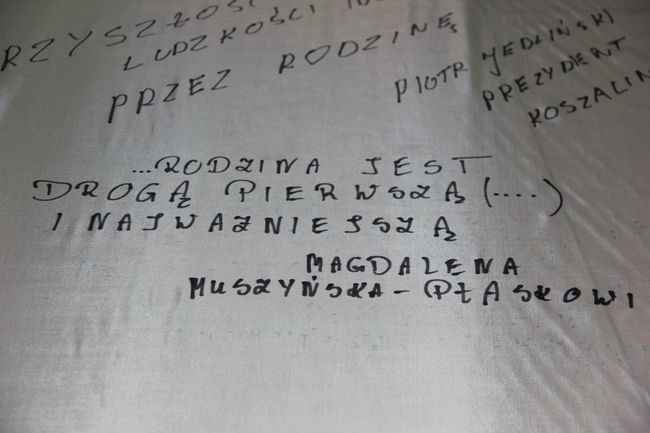 RZYSZŁOŚĆ
LUDZKOŚCI
PRZEZ RODZINĘ
PIOTR JEDLIŃSKI
PREZYDENT
KOSZALIN
...RODZINA JEST
DROGĄ PIERWSZĄ (....)
I NAJWAŻNIEJSZĄ
MAGDALENA
MUSZYŃSKA-PŁASKOWI